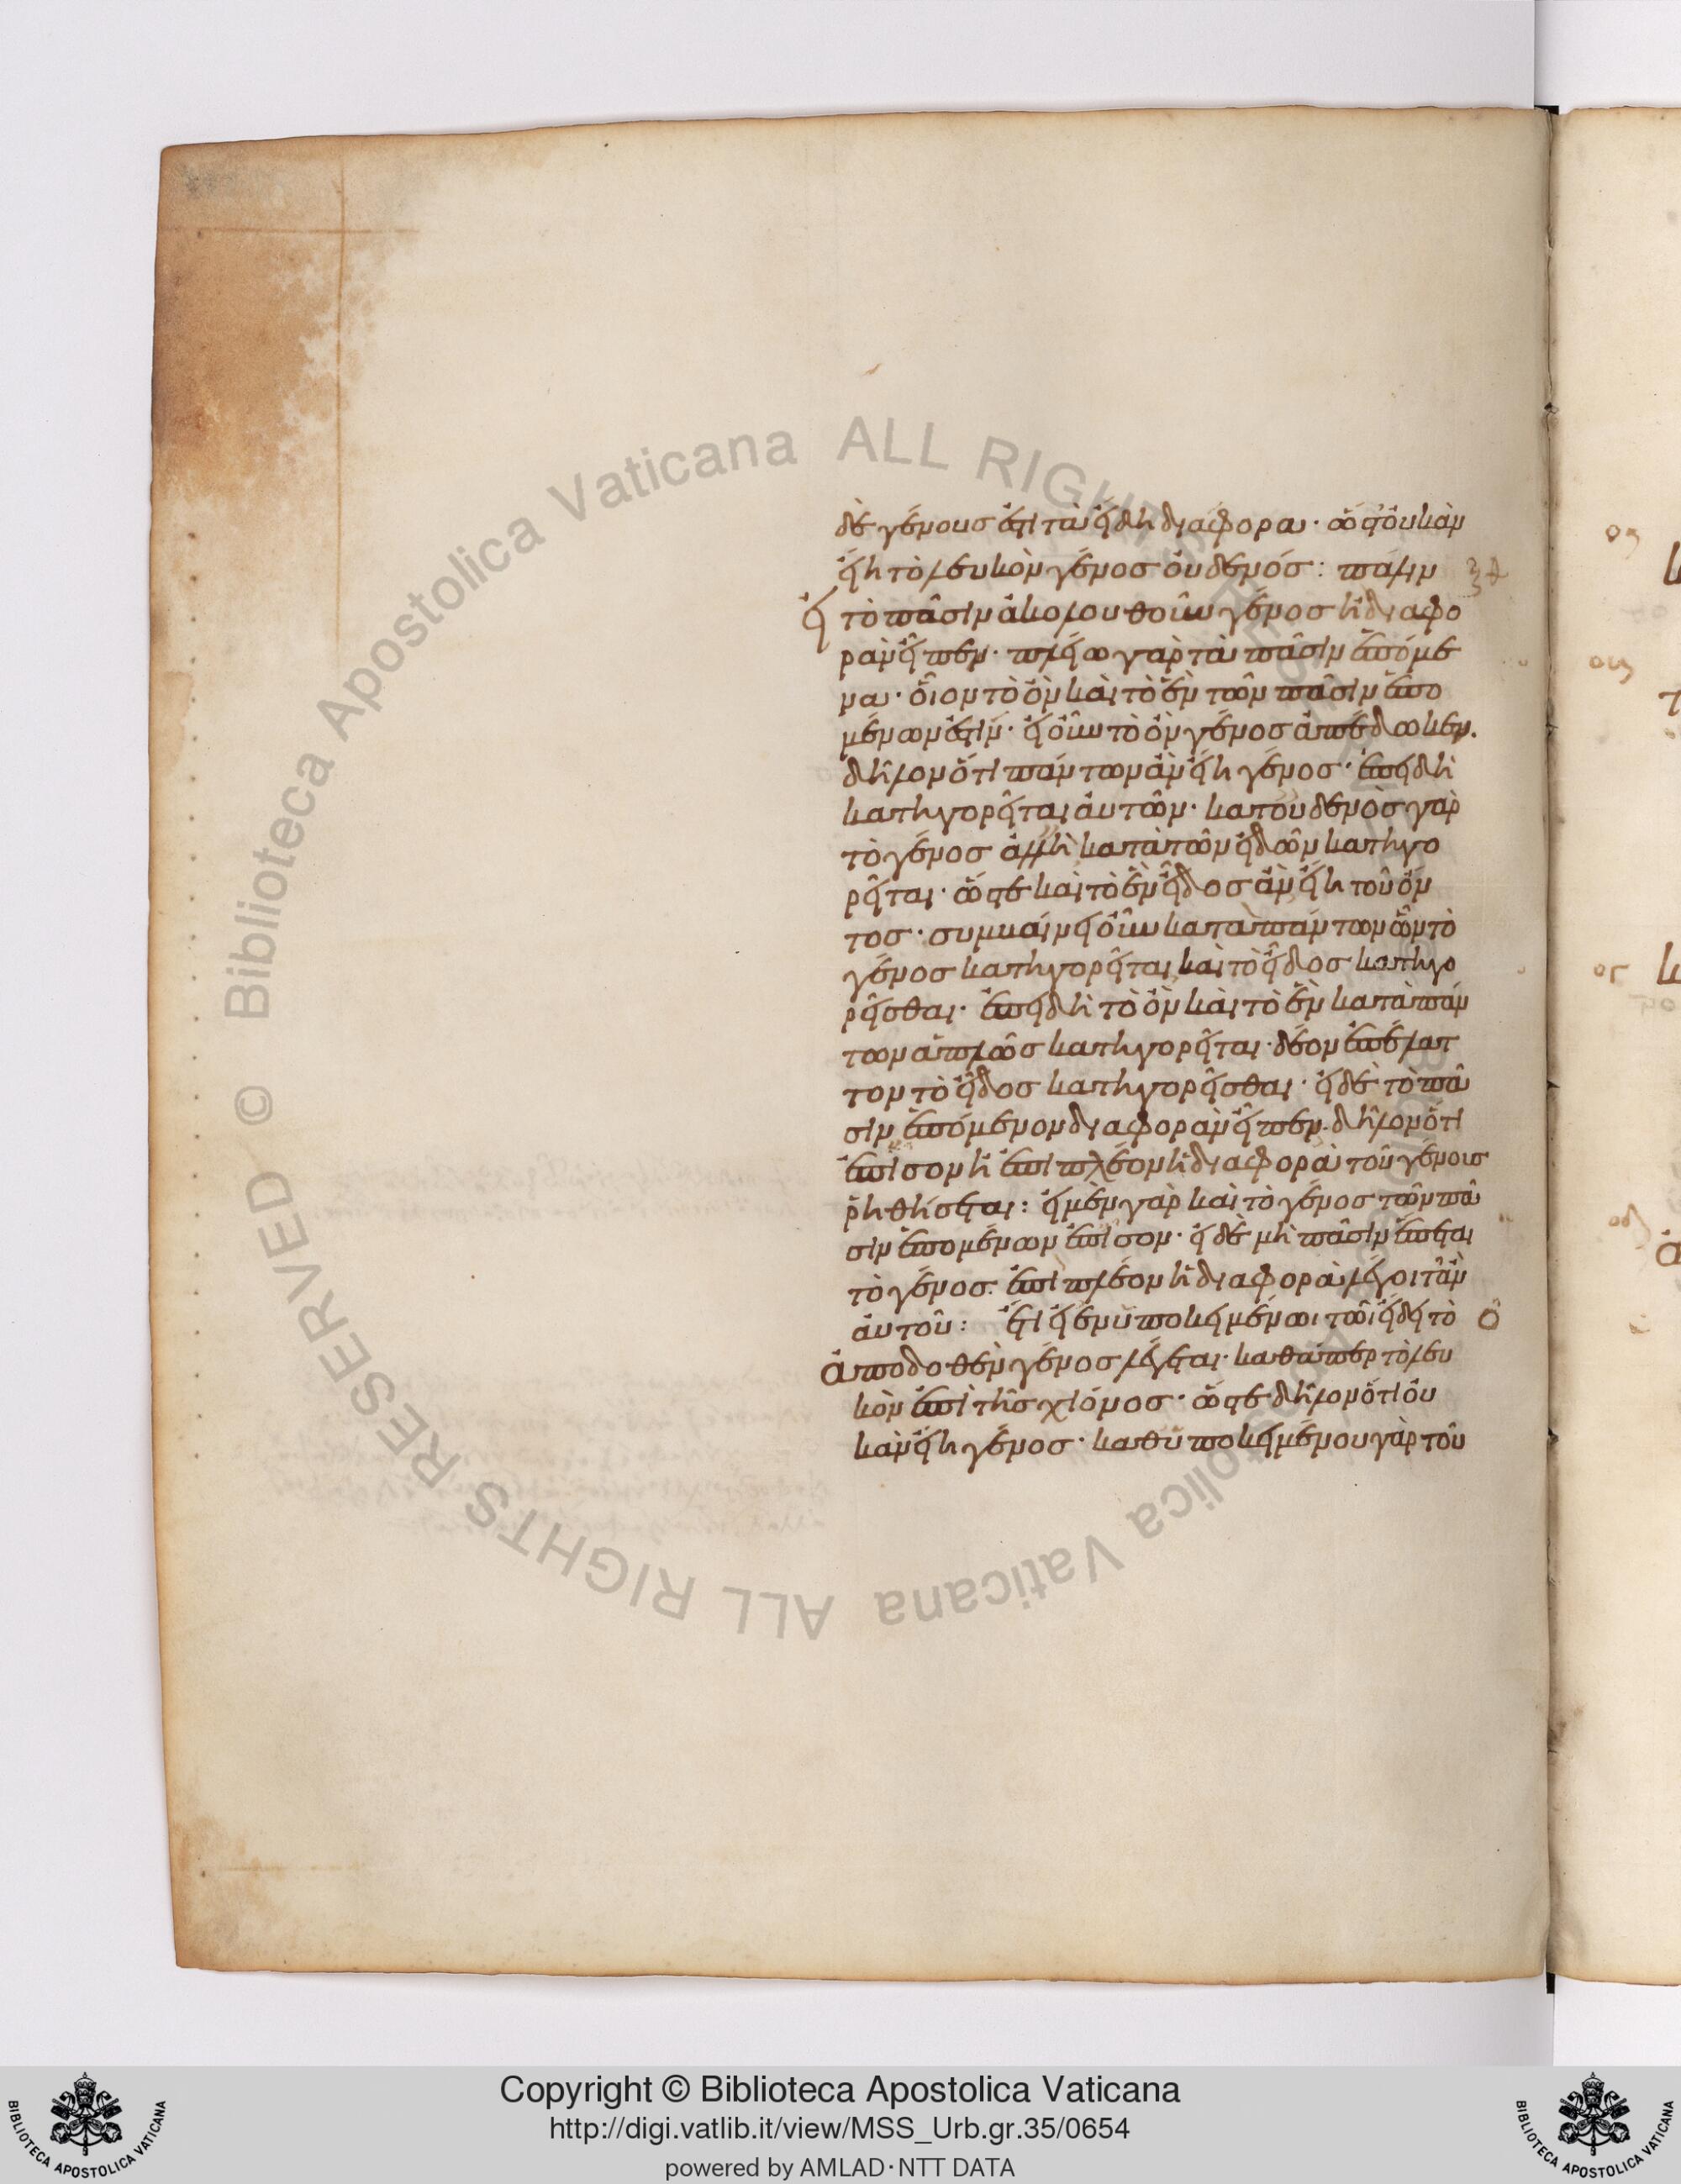 δὲ γένους ἐστὶ τὰ εἴδη διάφορα· ὥστ' οὐκ ἂν
εἴη τὸ λευκὸν γένος οὐδενός: πάλιν
εἰ τὸ πᾶσιν ἀκολουθοῦν γένος ἢ διαφο
ρὰν εἶπεν· πλείω γὰρ τὰ πᾶσιν ἑπόμε
να· οἷον τὸ ὂν καὶ τὸ ἓν τῶν πᾶσιν ἑπο
μένων ἐστίν· εἰ οὖν τὸ ὂν γένος ἀπέδωκεν.
δῆλον ὅτι πάντων ἂν εἴη γένος· ἐπειδὴ
κατηγορεῖται αὐτῶν· κατ' οὐδενὸς γὰρ
τὸ γένος ἀλλ' ἢ κατὰ τῶν εἰδῶν κατηγο
ρεῖται· ὥστε καὶ τὸ ἓν εἶδος ἂν εἴη τοῦ ὄν
τος· συμβαίνει οὖν κατὰ πάντων ὧν τὸ
γένος κατηγορεῖται καὶ τὸ εἶδος κατηγο
ρεῖσθαι· ἐπειδὴ τὸ ὂν καὶ τὸ ἓν κατὰ πάν
των ἁπλῶς κατηγορεῖται· δέον ἐπ' ἔλατ
τον τὸ εἶδος κατηγορεῖσθαι· εἰ δὲ τὸ πᾶ
σιν ἑπόμενον διαφορὰν εἶπεν. δῆλον ὅτι
ἐπ' ἴσον ἢ ἐπὶ πλέον ἡ διαφορὰ τοῦ γένους
ῥηθήσεται: εἰ μὲν γὰρ καὶ τὸ γένος τῶν πᾶ
σιν ἑπομένων ἐπ' ἴσον· εἰ δὲ μὴ πᾶσιν ἕπεται
τὸ γένος. ἐπὶ πλέον ἡ διαφορὰ λέγοιτ' ἂν
αὐτοῦ: ἔτι εἰ ἐν ὑποκειμένωι τῶι εἴδει τὸ
ἀποδοθὲν γένος λέγεται· καθάπερ τὸ λευ
κὸν ἐπὶ τῆς χιόνος· ὥστε δῆλον ὅτι οὐ
κ ἂν εἴη γένος· καθ' ὑποκειμένου γὰρ τοῦ
Copyright © Biblioteca Apostolica Vaticana
http://digi.vatlib.it/view/MSS_Urb.gr.35/0654
powered by AMLAD·NTT DATA
© Biblioteca Apostolica Vaticana ALL RIGHTS RESERVED
BIBLIOTECA APOSTOLICA VATICANA
BIBLIOTECA APOSTOLICA VATICANA